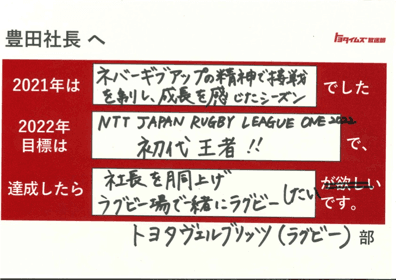 豊田社長 へ
トヨタイムズ 放送部
2021年は
ネバーギブアップの精神で接戦
を制し、成長を感じたシーズン
でした
2022年
目標は
NTT JAPAN RUGBY LEAGUE ONE 2022
初代王者!!
で、
達成したら
社長を胴上げ
ラグビー場で一緒にラグビー
したい
が欲しい
です。
トヨタヴェルブリッツ(ラグビー)部